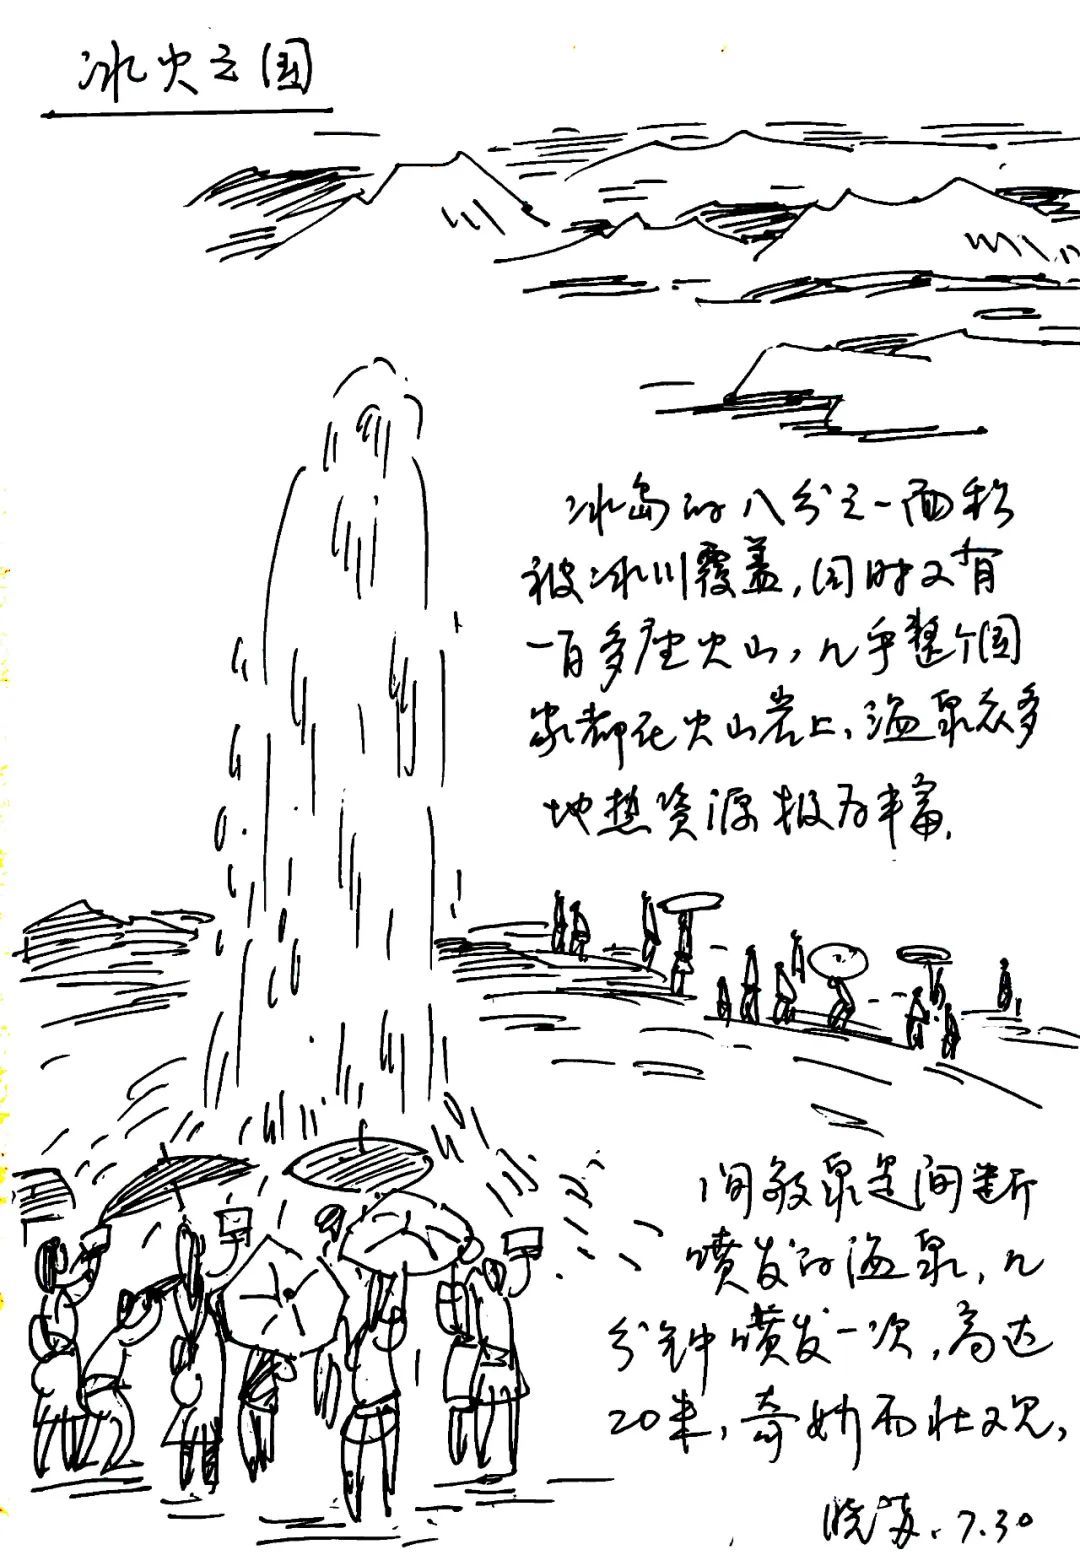 冰火之国
冰岛的八分之一面积
被冰川覆盖,同时又有
一百多座火山,几乎整个国
家都在火山岩上,温泉众多
地热资源极为丰富.
间歇泉是间断
喷发的温泉,几
分钟喷发一次,高达
20米,奇妙而壮观,
晓苏.7.30